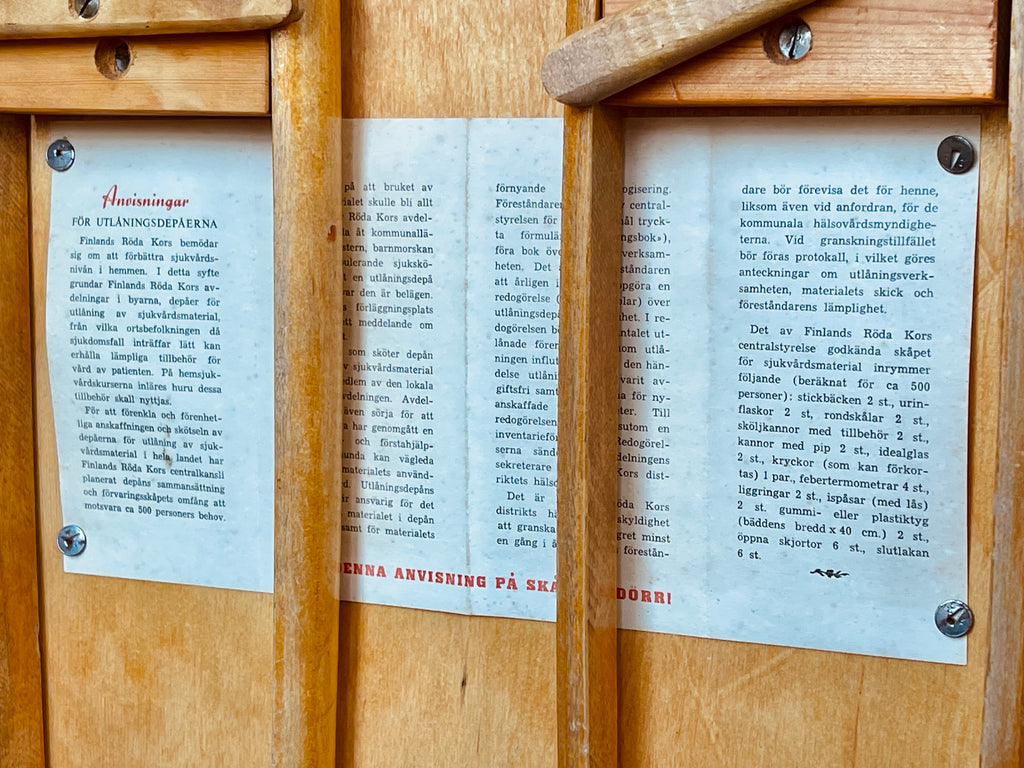 Anvisningar
FÖR UTLÅNINGSDEPÅERNA
Finlands Röda Kors bemödar
sig om att förbättra sjukvårds-
nivån i hemmen. I detta syfte
grundar Finlands Röda Kors av-
delningar i byarna, depåer för
utlåning av sjukvårdsmaterial,
från vilka ortsbefolkningen då
sjukdomsfall inträffar lätt kan
erhålla lämpliga tillbehör för
vård av patienten. På hemsjuk-
vårdskurserna inläres huru dessa
tillbehör skall nyttjas.
För att förenkla och förenhet-
liga anskaffningen och skötseln av
depåerna för utlåning av sjuk-
vårdsmaterial i hela landet har
Finlands Röda Kors centralkansli
planerat depåns sammansättning
och förvaringsskåpets omfång att
motsvara ca 500 personers behov.
på att bruket av
ialet skulle bli allt
Röda Kors avdel-
la åt kommunallä-
stern, barnmorskan
ulerande sjukskö-
t en utlåningsdepå
var den är belägen.
förläggningsplats
ett meddelande om
t.
som sköter depån
v sjukvårdsmaterial
edlem av den lokala
vdelningen. Avdel-
även sörja för att
a har genomgått en
och förstahjälp-
unda kan vägleda
materialets använd-
d. Utlåningsdepåns
är ansvarig för det
materialet i depån
samt för materialets
förnyande
Föreståndare
styrelsen för
ta formulä
föra bok öve
heten. Det
att årligen i
redogörelse (
utlåningsdepå
dogörelsen b
lånade fören
ningen influt
delse utlåni
giftsfri samt
anskaffade
redogörelsen
inventarieför
serna sände
sekreterare
riktets hälso
Det är
distrikts hä
att granska
en gång i å
ogisering.
central-
ål tryck-
ngsbok»),
verksam-
ståndaren
ppgöra en
lar) över
het. I re-
antalet ut-
om utlå-
den hän-
varit av-
a för ny-
ter. Till
sutom en
Redogörel-
delningens
Kors dist-
öda Kors
skyldighet
gret minst
förestån-
dare bör förevisa det för henne,
liksom även vid anfordran, för de
kommunala hälsovårdsmyndighe-
terna. Vid granskningstillfället
bör föras protokall, i vilket göres
anteckningar om utlåningsverk-
samheten, materialets skick och
föreståndarens lämplighet.
Det av Finlands Röda Kors
centralstyrelse godkända skåpet
för sjukvårdsmaterial inrymmer
följande (beräknat för ca 500
personer): stickbäcken 2 st., urin-
flaskor 2 st, rondskålar 2 st.,
sköljkannor med tillbehör 2 st.,
kannor med pip 2 st., idealglas
2 st., kryckor (som kan förkor-
tas) 1 par., febertermometrar 4 st.,
liggringar 2 st., ispåsar (med lås)
2 st. gummi- eller plastiktyg
(bäddens bredd x 40 cm.) 2 st.,
öppna skjortor 6 st., slutlakan
6 st.
DENNA ANVISNING PÅ SKÅ DÖRR!